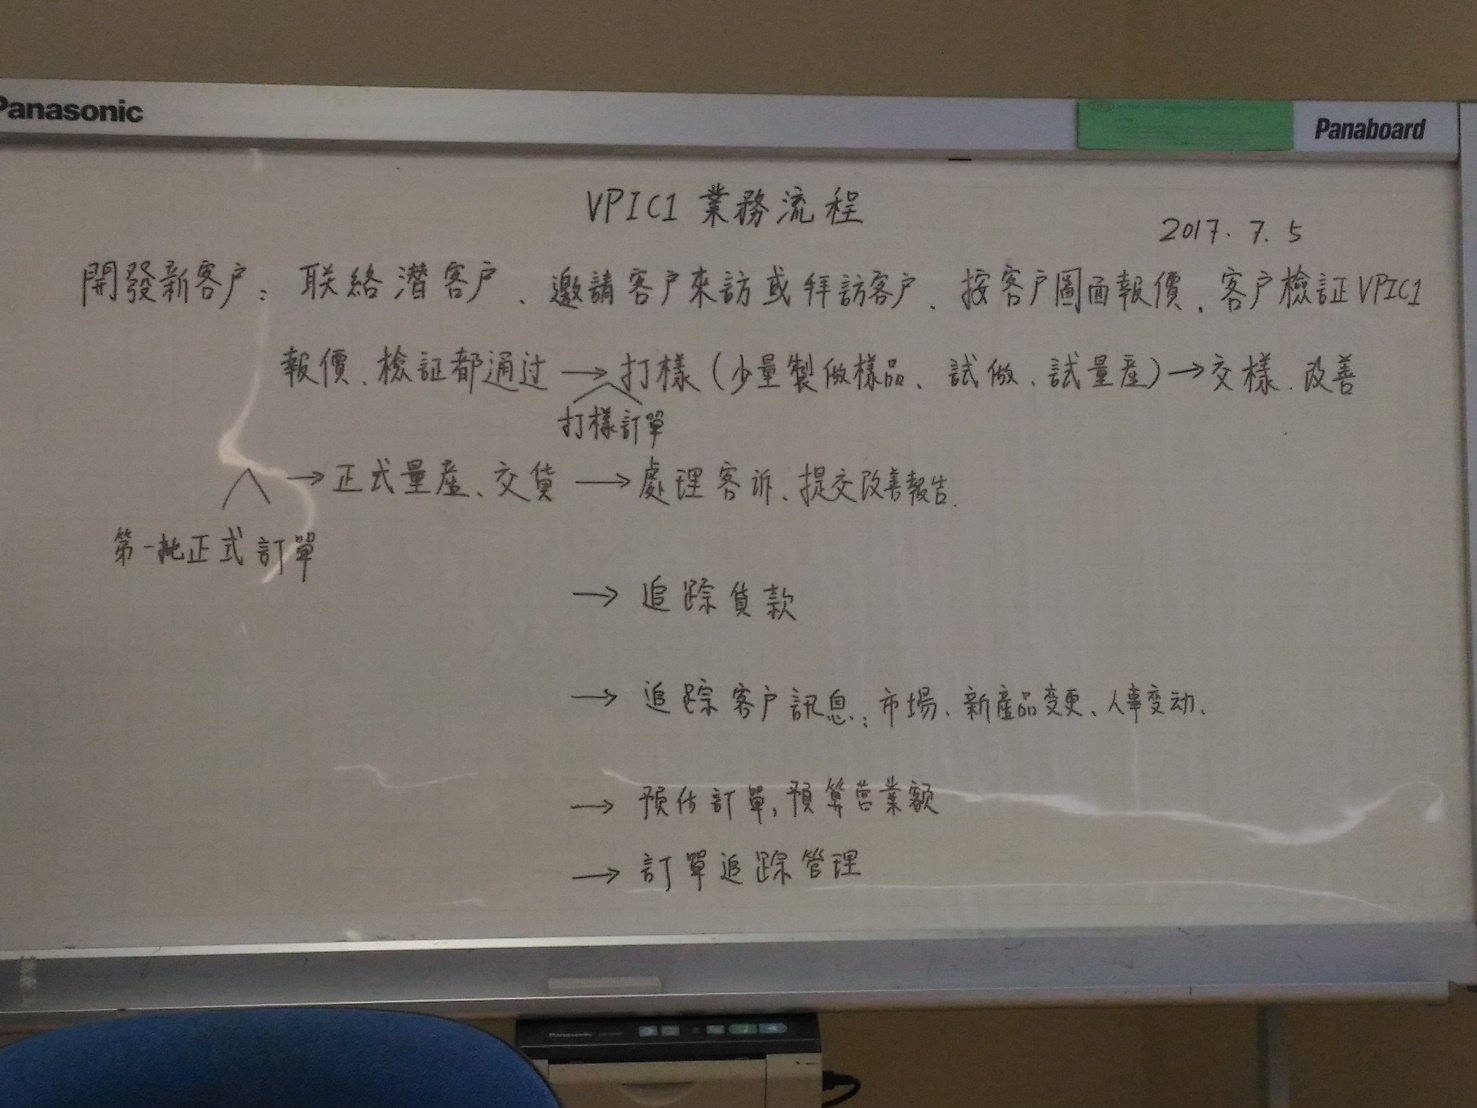 Panasonic
Panaboard
VPIC1 業務流程
2017. 7. 5
開發新客户: 联絡潛客户、邀請客户來訪或拜訪客户、按客户圖面報價、客户檢証VPIC1
報價、檢証都通过 → 打樣 (少量製做樣品、試做、試量産) → 交樣、改善
打樣訂單
→ 正式量産、交貨 → 處理客訴、提交改善報告.
第一批正式訂單
→ 追踪貨款
→ 追踪客户訊息: 市場、新產品变更、人事变动、
→ 預估訂單, 預算营業额
→ 訂單追踪管理
Panasonic